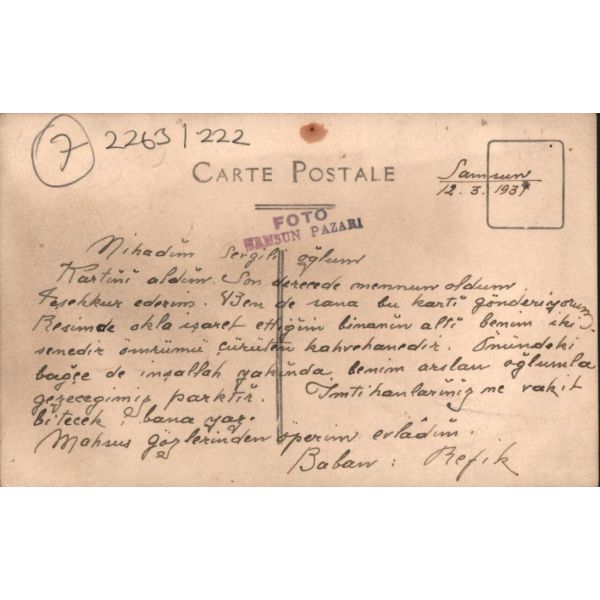 7
2263/222
CARTE POSTALE
Samsun
12.3.1931
FOTO
SAMSUN PAZARI
Nihadım Sevgili oğlum
Kartını aldım. Son derecede mennun oldum
Teşekkur ederim. Ben de sana bu kartı gönderiyorum.
Resimde okla işaret ettiğim binanın altı benim iki
senedir ömrümü çürüten kahvehanedir. Önündeki
bağçe de inşallah yakında benim arslan oğlumla
gezecegimiz parktır. İmtihanlarınız ne vakit
bitecek? bana yaz.
Mahsus gözlerinden öperim evlâdım.
Baban: Refik